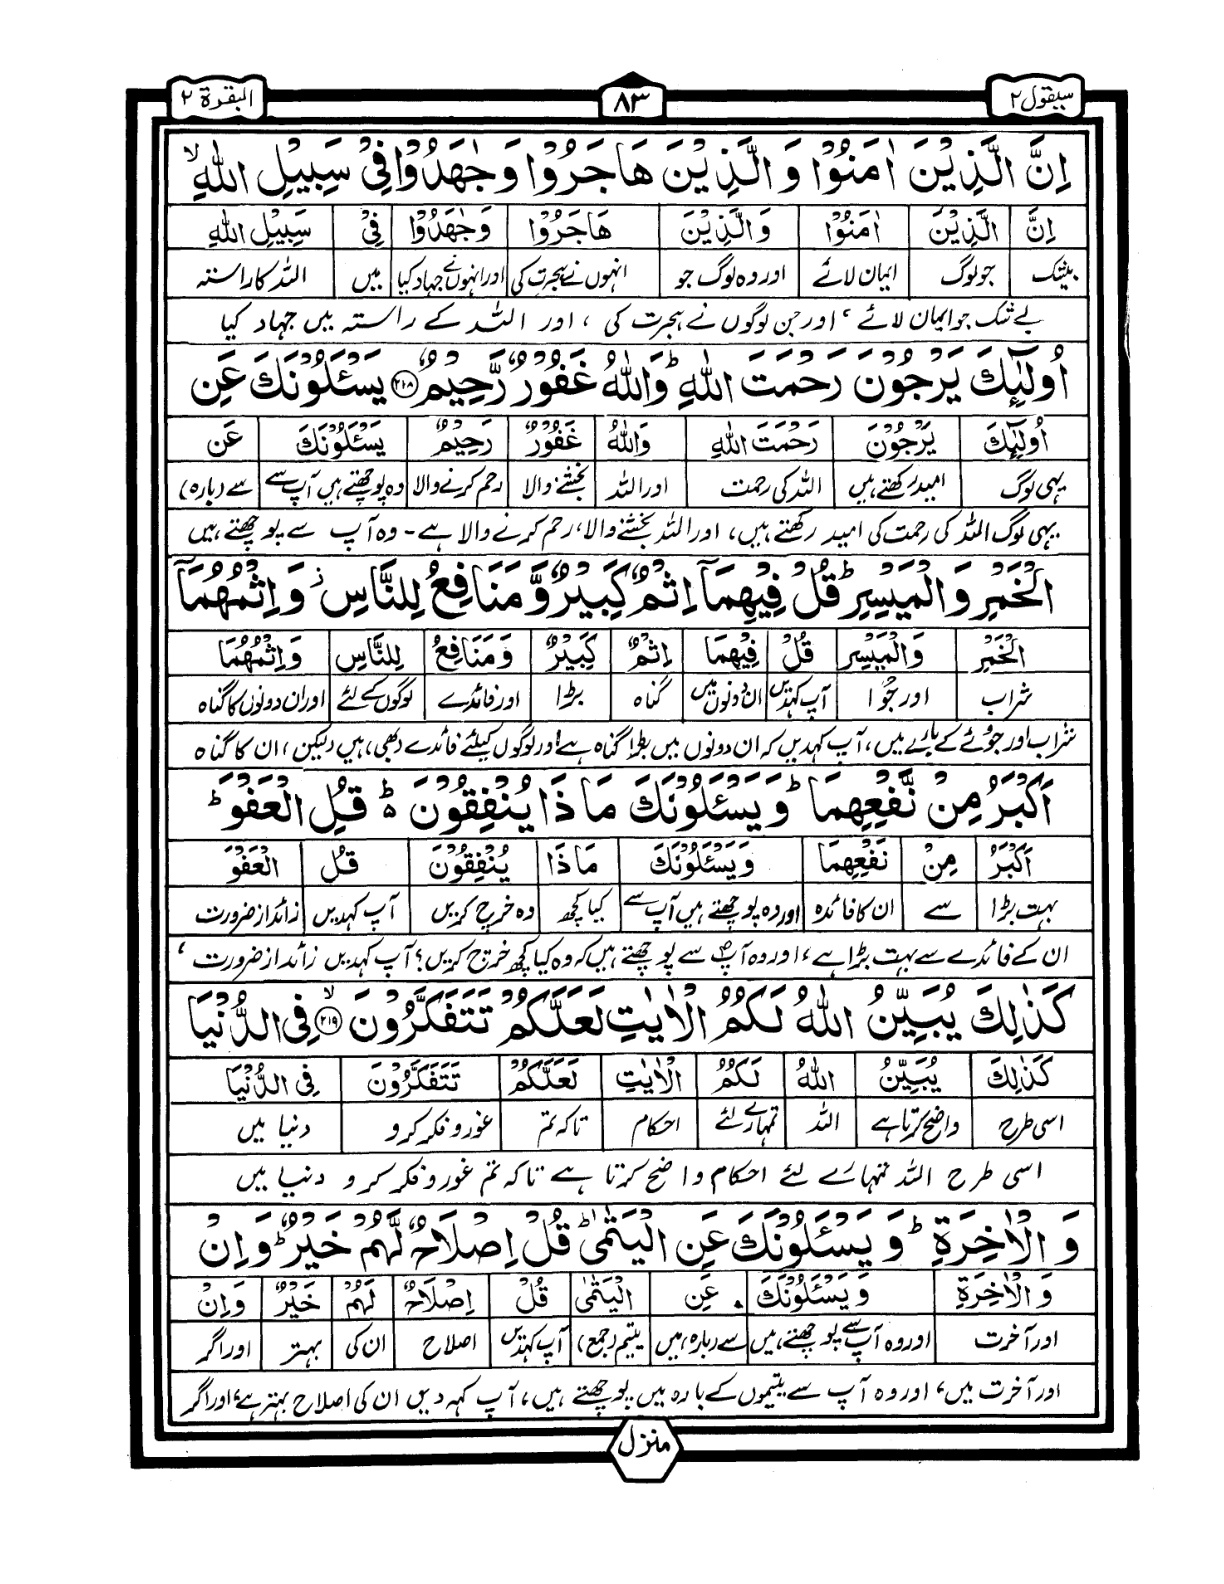 سیقول ۲ ۸۳ البقرة ۲
اِنَّ الَّذِیْنَ اٰمَنُوْا وَ الَّذِیْنَ هَاجَرُوْا وَ جٰهَدُوْا فِیْ سَبِیْلِ اللّٰهِ ۙ
اِنَّ الَّذِیْنَ اٰمَنُوْا وَ الَّذِیْنَ هَاجَرُوْا وَ جٰهَدُوْا فِیْ سَبِیْلِ اللّٰهِ
بیشک جو لوگ ایمان لائے اور وہ لوگ جو انہوں نے ہجرت کی اور انہوں نے جہاد کیا میں اللہ کا راستہ
بے شک جو ایمان لائے ، اور جن لوگوں نے ہجرت کی ، اور اللہ کے راستہ میں جہاد کیا
اُولٰٓئِكَ یَرْجُوْنَ رَحْمَتَ اللّٰهِ ؕ وَ اللّٰهُ غَفُوْرٌ رَّحِیْمٌ ﴿۲۱۸﴾ یَسْـَٔلُوْنَكَ عَنِ
اُولٰٓئِكَ یَرْجُوْنَ رَحْمَتَ اللّٰهِ وَ اللّٰهُ غَفُوْرٌ رَحِیْمٌ یَسْـَٔلُوْنَكَ عَنِ
یہی لوگ امید رکھتے ہیں اللہ کی رحمت اور اللہ بخشنے والا رحم کرنے والا وہ پوچھتے ہیں آپ سے سے (بارہ)
یہی لوگ اللہ کی رحمت کی امید رکھتے ہیں، اور اللہ بخشنے والا، رحم کرنے والا ہے۔ وہ آپ سے پوچھتے ہیں
الْخَمْرِ وَ الْمَیْسِرِ ؕ قُلْ فِیْهِمَاۤ اِثْمٌ كَبِیْرٌ وَّ مَنَافِعُ لِلنَّاسِ ؗ وَ اِثْمُهُمَاۤ
الْخَمْرِ وَ الْمَیْسِرِ قُلْ فِیْهِمَا اِثْمٌ كَبِیْرٌ وَ مَنَافِعُ لِلنَّاسِ وَ اِثْمُهُمَا
شراب اور جُوا آپ کہدیں ان دونوں میں گناہ بڑا اور فائدے لوگوں کے لئے اور ان دونوں کا گناہ
شراب اور جوئے کے بارے میں، آپ کہدیں کہ ان دونوں میں بڑا گناہ ہے اور لوگوں کیلئے فائدے (بھی) ہیں (لیکن) ان کا گناہ
اَكْبَرُ مِنْ نَّفْعِهِمَا ؕ وَ یَسْـَٔلُوْنَكَ مَا ذَا یُنْفِقُوْنَ ؕ قُلِ الْعَفْوَ ؕ
اَكْبَرُ مِنْ نَفْعِهِمَا وَ یَسْـَٔلُوْنَكَ مَا ذَا یُنْفِقُوْنَ قُلْ الْعَفْوَ
بہت بڑا سے ان کا فائدہ اور وہ پوچھتے ہیں آپ سے کیا کچھ وہ خرچ کریں آپ کہدیں زائد از ضرورت
ان کے فائدے سے بہت بڑا ہے ، اور وہ آپ سے پوچھتے ہیں کہ وہ کیا کچھ خرچ کریں؟ آپ کہدیں زائد از ضرورت ،
كَذٰلِكَ یُبَیِّنُ اللّٰهُ لَكُمُ الْاٰیٰتِ لَعَلَّكُمْ تَتَفَكَّرُوْنَ ۙ﴿۲۱۹﴾ فِی الدُّنْیَا
كَذٰلِكَ یُبَیِّنُ اللّٰهُ لَكُمُ الْاٰیٰتِ لَعَلَّكُمْ تَتَفَكَّرُوْنَ فِی الدُّنْیَا
اسی طرح واضح کرتا ہے اللہ تمہارے لئے احکام تاکہ تم غور و فکر کرو دنیا میں
اسی طرح اللہ تمہارے لئے احکام واضح کرتا ہے تاکہ تم غور و فکر کرو دنیا میں
وَ الْاٰخِرَةِ ؕ وَ یَسْـَٔلُوْنَكَ عَنِ الْیَتٰمٰی ؕ قُلْ اِصْلَاحٌ لَّهُمْ خَیْرٌ ؕ وَ اِنْ
وَ الْاٰخِرَةِ وَ یَسْـَٔلُوْنَكَ عَنِ الْیَتٰمٰی قُلْ اِصْلَاحٌ لَهُمْ خَیْرٌ وَ اِنْ
اور آخرت اور وہ آپ سے پوچھتے ہیں سے (بارہ) میں یتیم (جمع) آپ کہدیں اصلاح ان کی بہتر اور اگر
اور آخرت میں، اور وہ آپ سے یتیموں کے بارہ میں پوچھتے ہیں، آپ کہہ دیں ان کی اصلاح بہتر ہے، اور اگر
منزل